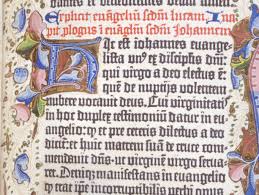 dantes et benedicentes deum amen
Explicit euangeliū scdm lucam Inci
pit plogus ī euangliū scdm Johannem
Hic est iohannes euange-
lista vn⁹ ex discipulis dni:
qui virgo a deo electus ē:
quē de nuptijs volentem
nubere vocauit deus. Cui virginitatis
in hoc duplex testimoniū datur in eu-
angelio: q et pre ceteris dilectus a deo
dicit: et huic matrem suā de cruce com-
mendauit dn̄s: ut virginem virgo serua-
ret. Deniq; manifestans in euangelio
q erat ipe incorruptibilis verbi